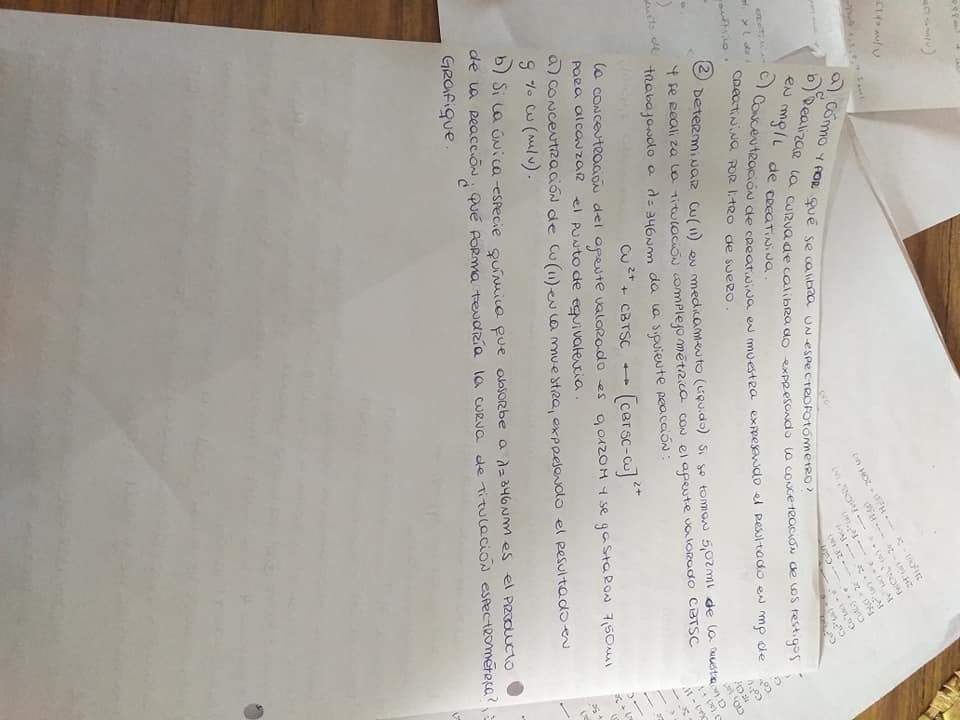 a) Cómo y por qué se calibra un espectrofotómetro?
b) Realizar la curva de calibrado expresando la concetración de los testigos
en mg/L de creatinina.
c) Concentración de creatinina en muestra expresando el resultado en mg de
creatinina por litro de suero.
② Determinar Cu(II) en medicamento (líquido) si se toman 5,02ml de la muestra
y se realiza la titulación complejométrica con el agente valorado CBTSC
trabajando a λ=346nm da la siguiente reacción:
Cu²⁺ + CBTSC ↔ [CBTSC-Cu]²⁺
la concentración del agente valorado es 0,0120M y se gastaron 7,50ml
para alcanzar el punto de equivalencia.
a) Concentración de Cu(II) en la muestra, expresando el resultado en
g % Cu (m/v).
b) Si la única especie química que absorbe a λ=346nm es el producto
de la reacción, ¿qué forma tendría la curva de titulación espectrométrica?
Grafique.